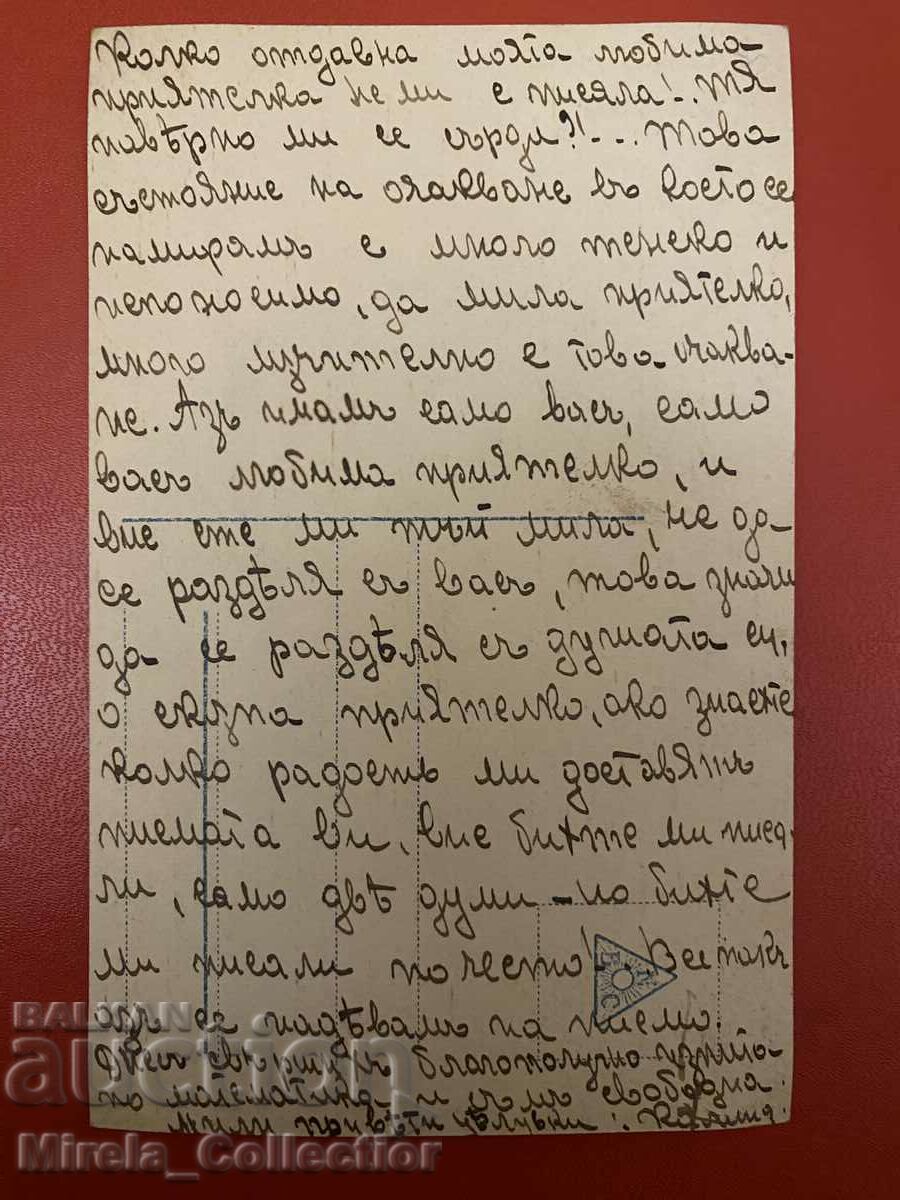 Колко отдавна моята любима
приятелка не ми е писала!.. Тя
навѣрно ми се сърди?!... Това
състояние на очакване въ което се
намирамъ е много тежко и
непоносимо, да мила приятелко,
много мѫчително е това очаква-
не. Азъ имамъ само васъ, само
васъ любима приятелко, и
вие сте ми тъй мила, не да
се раздѣля съ васъ, това значи
да се раздѣля съ душата си,
о скѫпа приятелко, ако знаехте
колко радость ми доставятъ
писмата ви, вие бихте ми писа-
ли, само двѣ думи – но бихте
ми писали по често! Все пакъ
азъ се надѣвамъ на писмо.
Днесъ свършихъ благополучно изпита
по математика и съмъ свободна.
Мили привѣти цѣлувки:
BALKAN
auction
Mirela_Collectior